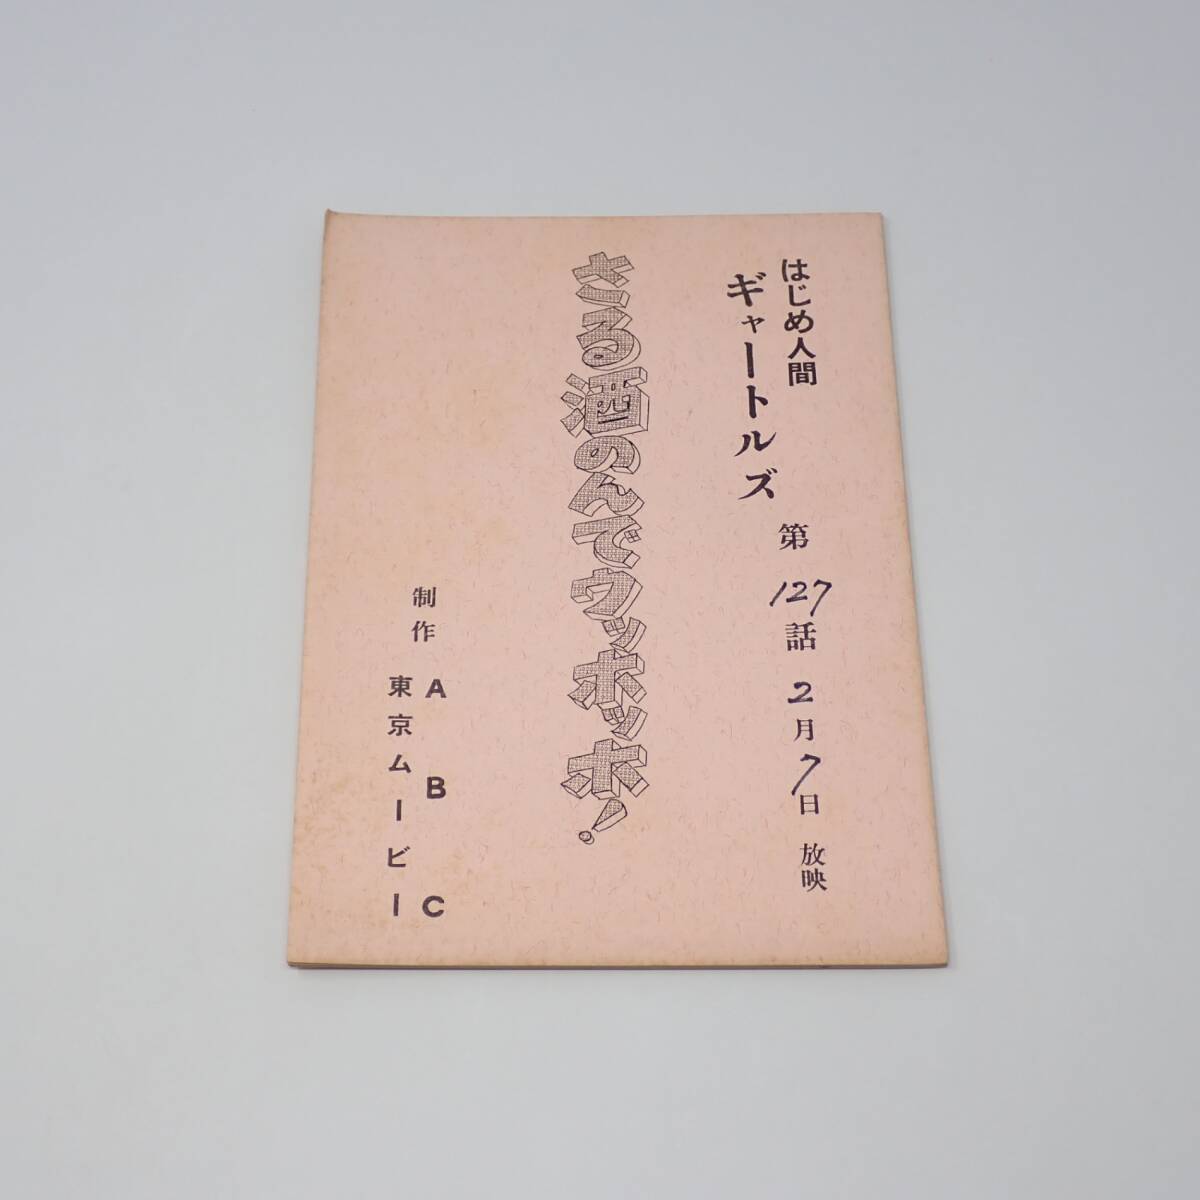 はじめ人間
ギャートルズ
第127話 2月7日 放映
さる酒のんでウッホッホ!
制作 ABC
東京ムービー